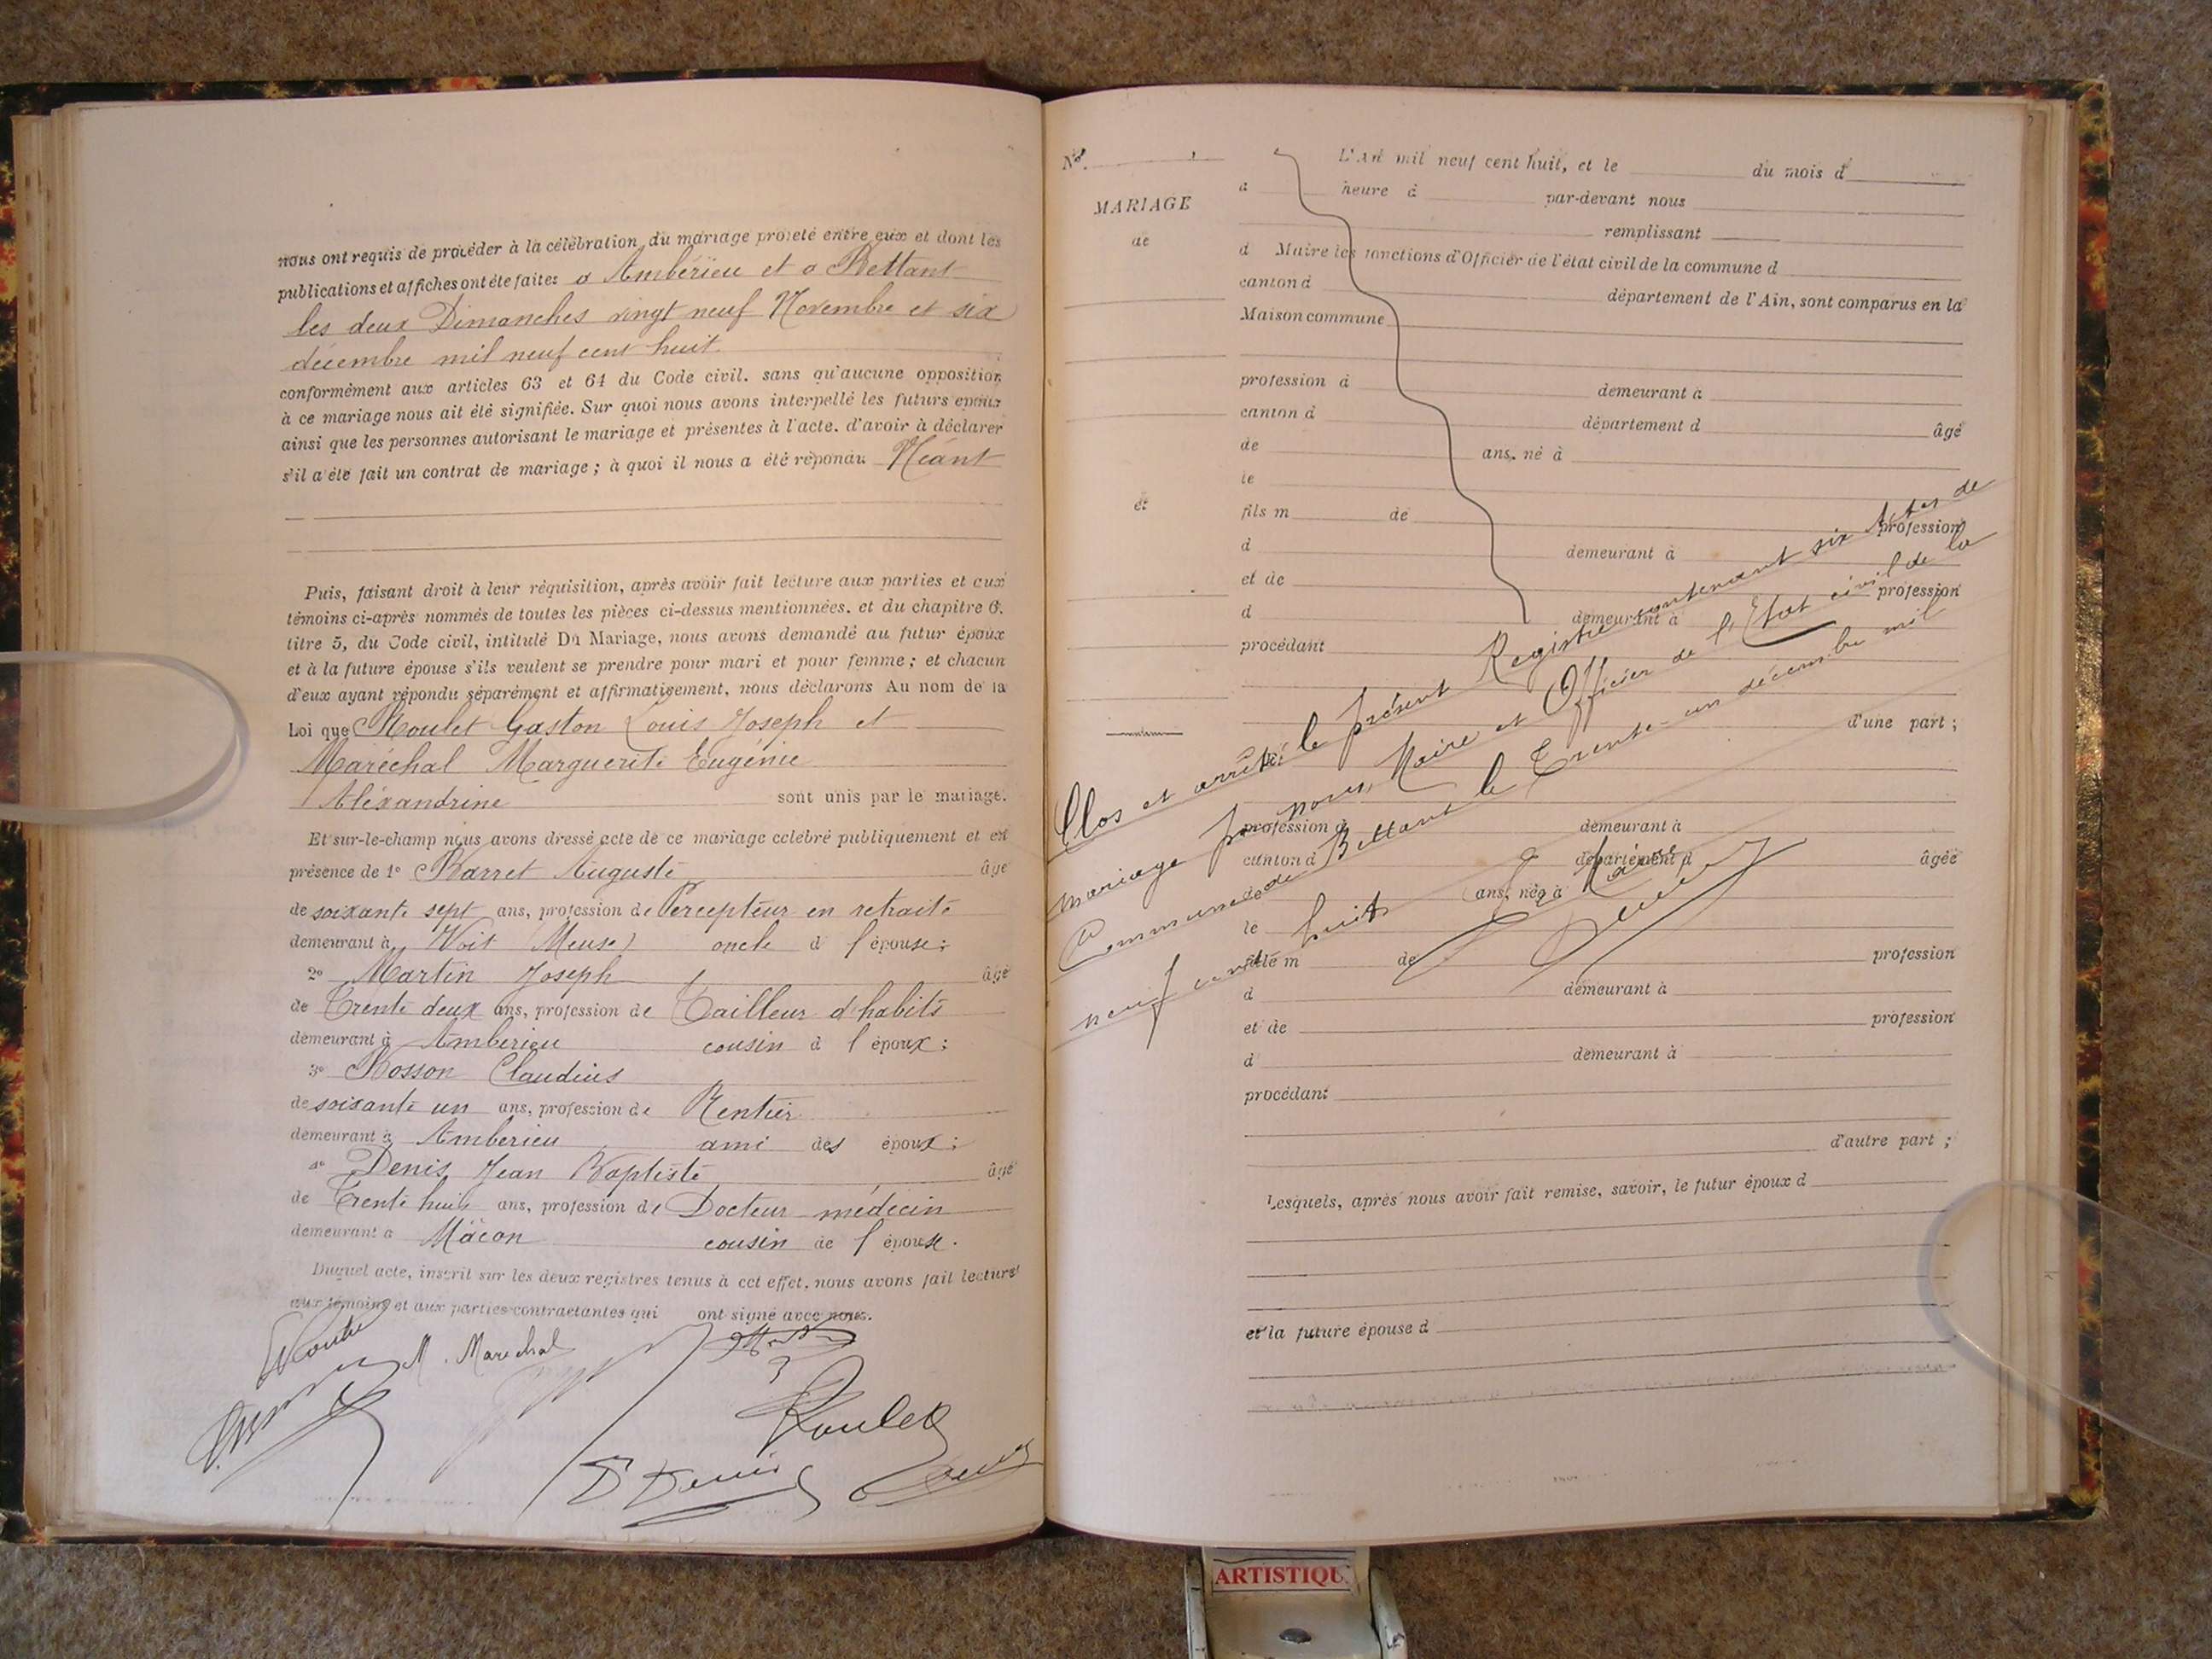 nous ont requis de procéder à la célébration du mariage projeté entre eux et dont les
publications et affiches ont été faites à Ambérieu et à Bettant
les deux Dimanches vingt neuf Novembre et six
décembre mil neuf cent huit
conformément aux articles 63 et 64 du Code civil. sans qu'aucune opposition
à ce mariage nous ait été signifiée. Sur quoi nous avons interpellé les futurs epoux
ainsi que les personnes autorisant le mariage et présentes à l'acte. d'avoir à déclarer
s'il a été fait un contrat de mariage ; à quoi il nous a été répondu Néant
Puis, faisant droit à leur réquisition, après avoir fait lecture aux parties et aux
témoins ci-après nommés de toutes les pièces ci-dessus mentionnées. et du chapitre 6.
titre 5, du Code civil, intitulé Du Mariage, nous avons demandé au futur époux
et à la future épouse s'ils veulent se prendre pour mari et pour femme ; et chacun
d'eux ayant répondu séparément et affirmativement, nous déclarons Au nom de la
Loi que Roulet Gaston Louis Joseph et
Maréchal Marguerite Eugénie
Aléxandrine sont unis par le mariage.
Et sur-le-champ nous avons dressé acte de ce mariage célébré publiquement et en
présence de 1° Barret Auguste âgé
de soixante sept ans, profession de Percepteur en retraite
demeurant à Void (Meuse) oncle d l'épouse ;
2° Martin Joseph âgé
de Trente deux ans, profession de Tailleur d'habits
demeurant à Ambérieu cousin d l'époux ;
3° Bosson Claudius
de soixante un ans, profession de Rentier
demeurant à Ambérieu ami des époux ;
4° Denis Jean Baptiste âgé
de Trente huit ans, profession de Docteur médecin
demeurant à Mâcon cousin de l'épouse.
Duquel acte, inscrit sur les deux registres tenus à cet effet, nous avons fait lecture
aux témoins et aux parties contractantes qui ont signé avec nous.
M. Marechal
Roulet
D Denis
N°
MARIAGE
de
et
L'An mil neuf cent huit, et le du mois d
à heure d par-devant nous
remplissant
d Maire les fonctions d'Officier de l'état civil de la commune d
canton d département de l'Ain, sont comparus en la
Maison commune
profession d demeurant à
canton d département d âgé
de ans, né à
le
fils m de profession
d demeurant à
et de profession
d demeurant à
procédant
d'une part ;
Clos et arrêté le présent Registre contenant six Actes de
mariage par nous, Maire et Officier de l'Etat civil de la
Commune de Bettant le Trente-un décembre mil
neuf cent huit
Le Maire
profession d demeurant à
canton d département d âgée
ans, née à
le
fille m de profession
d demeurant à
et de profession
d demeurant à
procédant
d'autre part ;
Lesquels, après nous avoir fait remise, savoir, le futur époux d
et la future épouse d
ARTISTIQU